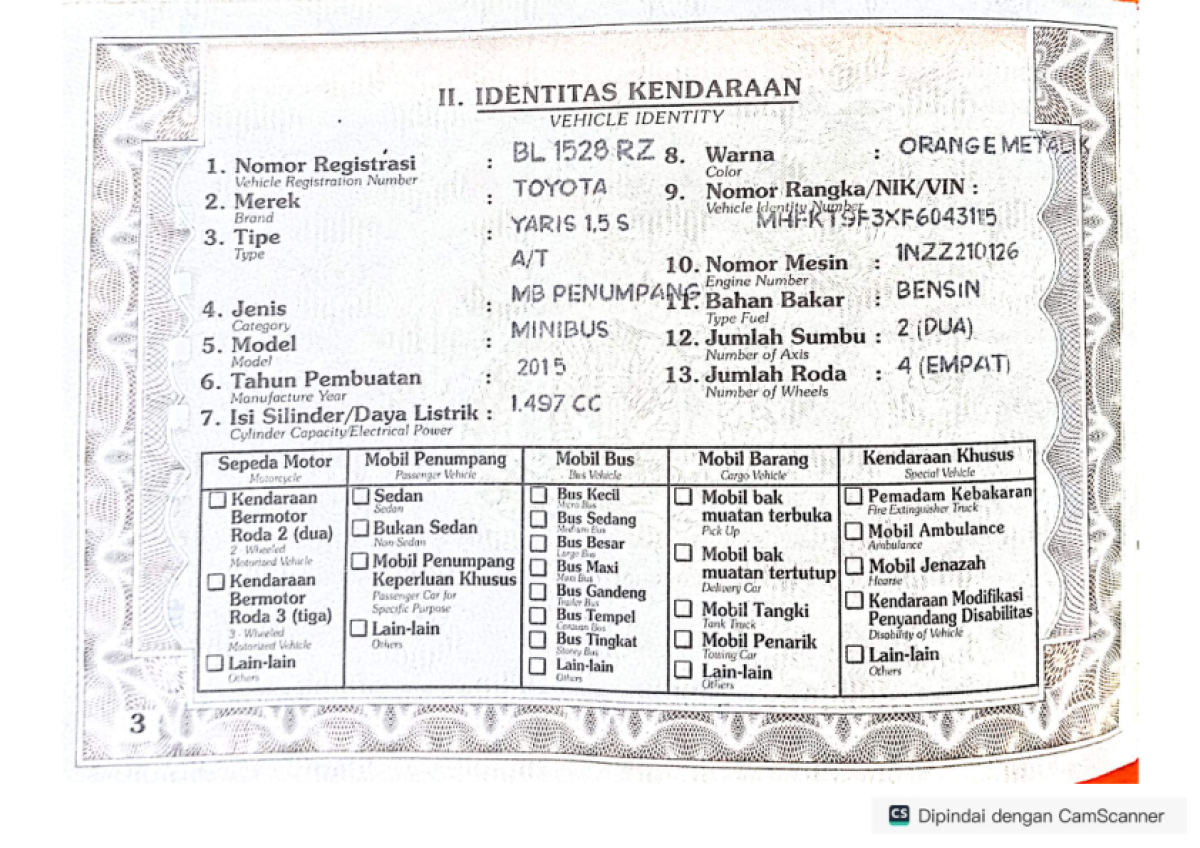 II. IDENTITAS KENDARAAN
VEHICLE IDENTITY
1. Nomor Registrasi : BL 1528 RZ
Vehicle Registration Number
2. Merek : TOYOTA
Brand
3. Tipe : YARIS 1,5 S
Type
A/T
4. Jenis : MB PENUMPANG
Category
5. Model : MINIBUS
Model
6. Tahun Pembuatan : 2015
Manufacture Year
7. Isi Silinder/Daya Listrik : 1.497 CC
Cylinder Capacity/Electrical Power
8. Warna : ORANGE METALIK
Color
9. Nomor Rangka/NIK/VIN :
Vehicle Identity Number
MHFKT9F3XF6043115
10. Nomor Mesin : 1NZZ210126
Engine Number
11. Bahan Bakar : BENSIN
Type Fuel
12. Jumlah Sumbu : 2 (DUA)
Number of Axis
13. Jumlah Roda : 4 (EMPAT)
Number of Wheels
Sepeda Motor
Motorcycle
Kendaraan
Bermotor
Roda 2 (dua)
2 - Wheeled
Motorized Vehicle
Kendaraan
Bermotor
Roda 3 (tiga)
3 - Wheeled
Motorized Vehicle
Lain-lain
Others
Mobil Penumpang
Passenger Vehicle
Sedan
Sedan
Bukan Sedan
Non Sedan
Mobil Penumpang
Keperluan Khusus
Passenger Car for
Specific Purpose
Lain-lain
Others
Mobil Bus
Bus Vehicle
Bus Kecil
Micro Bus
Bus Sedang
Medium Bus
Bus Besar
Large Bus
Bus Maxi
Maxi Bus
Bus Gandeng
Trailer Bus
Bus Tempel
Bus
Bus Tingkat
Storey Bus
Lain-lain
Others
Mobil Barang
Cargo Vehicle
Mobil bak
muatan terbuka
Pick Up
Mobil bak
muatan tertutup
Delivery Car
Mobil Tangki
Tank Truck
Mobil Penarik
Towing Car
Lain-lain
Others
Kendaraan Khusus
Special Vehicle
Pemadam Kebakaran
Fire Extinguisher Truck
Mobil Ambulance
Ambulance
Mobil Jenazah
Hearse
Kendaraan Modifikasi
Penyandang Disabilitas
Disability of Vehicle
Lain-lain
Others
3
CS Dipindai dengan CamScanner